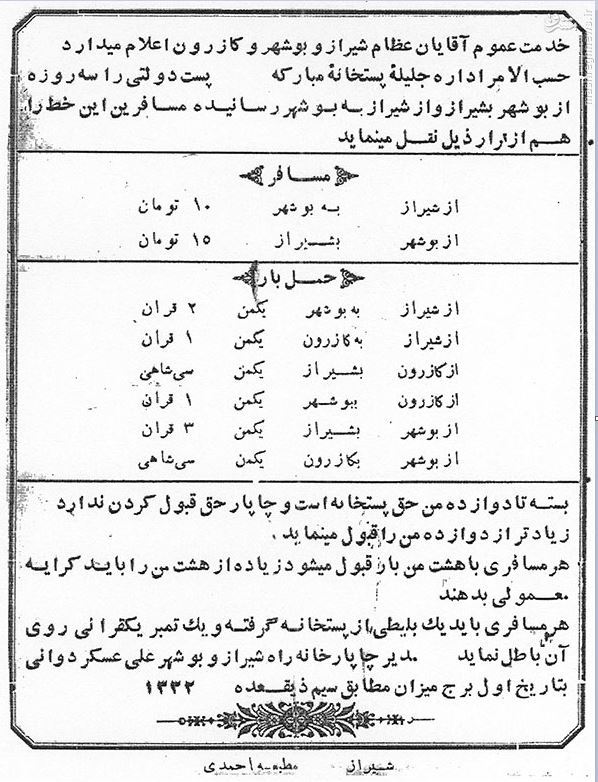 خدمت عموم آقایان عظام شیراز و بوشهر و کازرون اعلام میدارد
حسب الامر اداره جلیلۀ پستخانۀ مبارکه پست دولتی را سه روزه
از بوشهر بشیراز و از شیراز به بوشهر رسانیده مسافرین این خط را
هم از قرار ذیل نقل مینماید
مسافر
از شیراز به بوشهر ۱۰ تومان
از بوشهر بشیراز ۱۵ تومان
حمل بار
از شیراز به بوشهر یکمن ۲ قران
از شیراز به کازرون یکمن ۱ قران
از کازرون بشیراز یکمن سی شاهی
از کازرون ببوشهر یکمن ۱ قران
از بوشهر بشیراز یکمن ۳ قران
از بوشهر بکازرون یکمن سی شاهی
بسته تا دوازده من حق پستخانه است و چاپار حق قبول کردن ندارد
زیادتر از دوازده من را قبول مینماید.
هر مسافری با هشت من بار قبول میشود زیاده از هشت من را باید کرایه
معمولی بدهند
هر مسافری باید یك بلیطی از پستخانه گرفته و یك تمبر یکقرانی روی
آن باطل نماید مدیر چاپارخانه راه شیراز و بوشهر علی عسکر دوانی
بتاریخ اول برج میزان مطابق سیم ذیقعده ۱۳۳۲
شیراز مطبعه احمدی
mashreghnews.ir